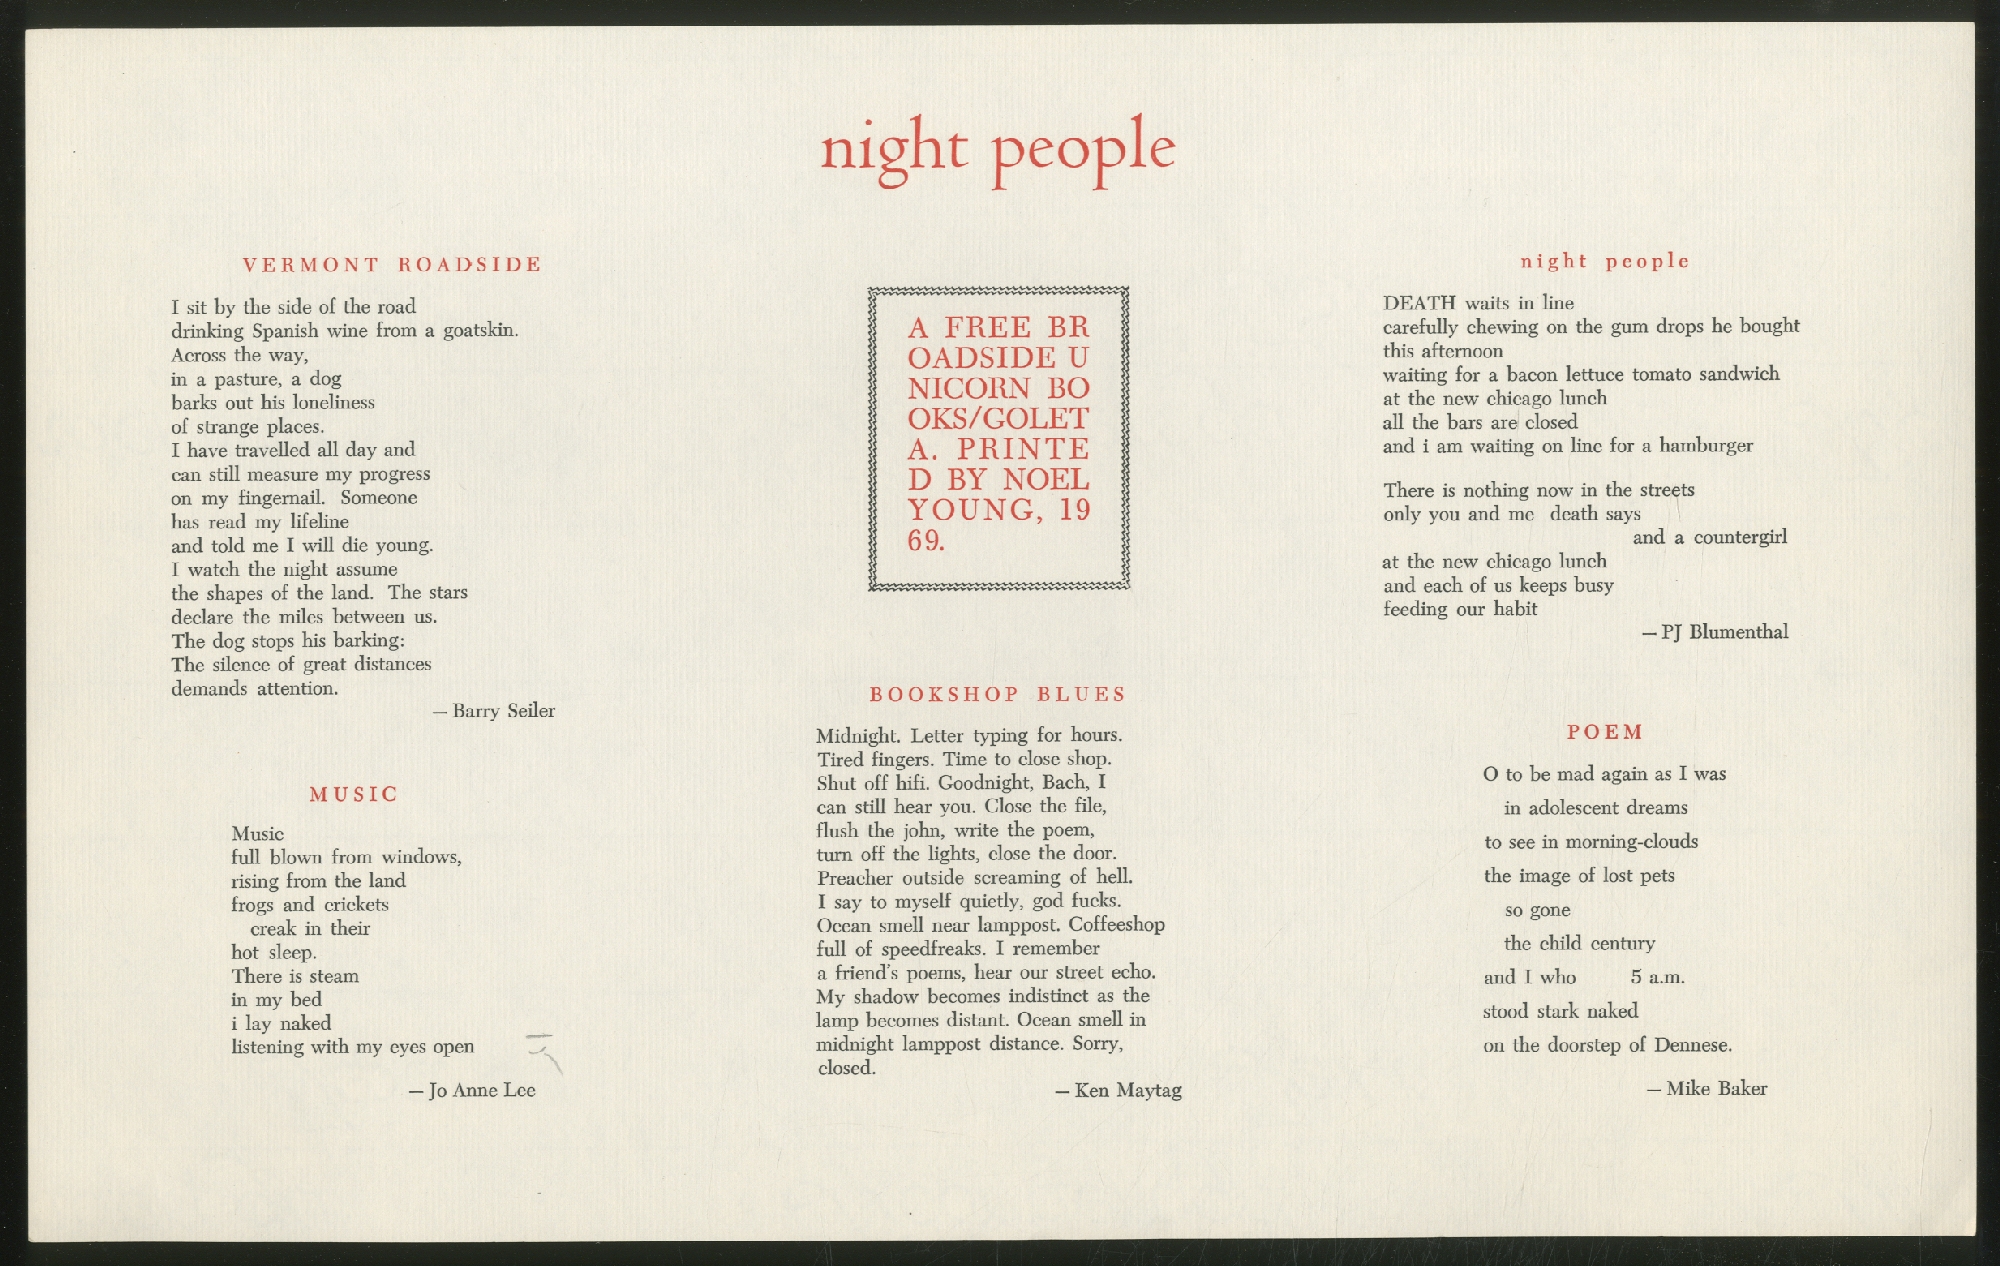 night people
VERMONT ROADSIDE
I sit by the side of the road
drinking Spanish wine from a goatskin.
Across the way,
in a pasture, a dog
barks out his loneliness
of strange places.
I have travelled all day and
can still measure my progress
on my fingernail. Someone
has read my lifeline
and told me I will die young.
I watch the night assume
the shapes of the land. The stars
declare the miles between us.
The dog stops his barking:
The silence of great distances
demands attention.
— Barry Seiler
MUSIC
Music
full blown from windows,
rising from the land
frogs and crickets
creak in their
hot sleep.
There is steam
in my bed
i lay naked
listening with my eyes open
— Jo Anne Lee
A FREE BR
OADSIDE U
NICORN BO
OKS/GOLET
A. PRINTE
D BY NOEL
YOUNG, 19
69.
BOOKSHOP BLUES
Midnight. Letter typing for hours.
Tired fingers. Time to close shop.
Shut off hifi. Goodnight, Bach, I
can still hear you. Close the file,
flush the john, write the poem,
turn off the lights, close the door.
Preacher outside screaming of hell.
I say to myself quietly, god fucks.
Ocean smell near lamppost. Coffeeshop
full of speedfreaks. I remember
a friend's poems, hear our street echo.
My shadow becomes indistinct as the
lamp becomes distant. Ocean smell in
midnight lamppost distance. Sorry,
closed.
— Ken Maytag
night people
DEATH waits in line
carefully chewing on the gum drops he bought
this afternoon
waiting for a bacon lettuce tomato sandwich
at the new chicago lunch
all the bars are closed
and i am waiting on line for a hamburger
There is nothing now in the streets
only you and me death says
and a countergirl
at the new chicago lunch
and each of us keeps busy
feeding our habit
— PJ Blumenthal
POEM
O to be mad again as I was
in adolescent dreams
to see in morning-clouds
the image of lost pets
so gone
the child century
and I who 5 a.m.
stood stark naked
on the doorstep of Dennese.
— Mike Baker